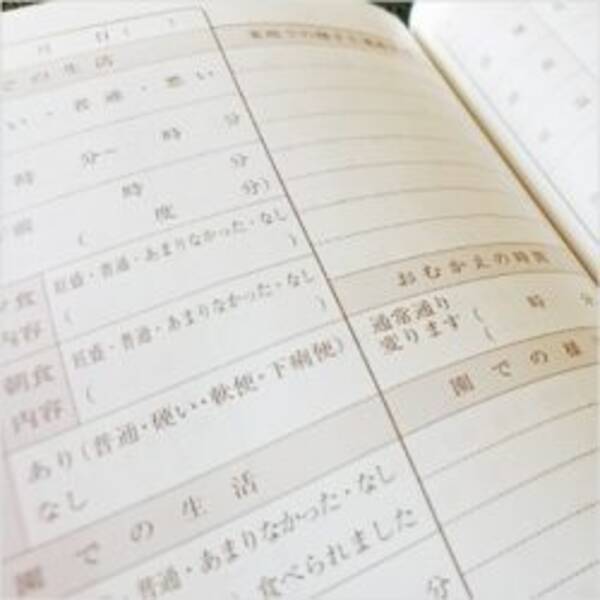 月 日( )
での生活
い・普通・悪い
時 分〜 時 分
時 分
( 度 分)
旺盛・普通・あまりなかった・なし
( )
夕食
内容
旺盛・普通・あまりなかった・なし
( )
朝食
内容
あり(普通・硬い・軟便・下痢便)
なし
園での生活
普通・あまりなかった・なし
食べられました
分
おむかえの時間
通常通り
変ります
( 時 分
(
園での様